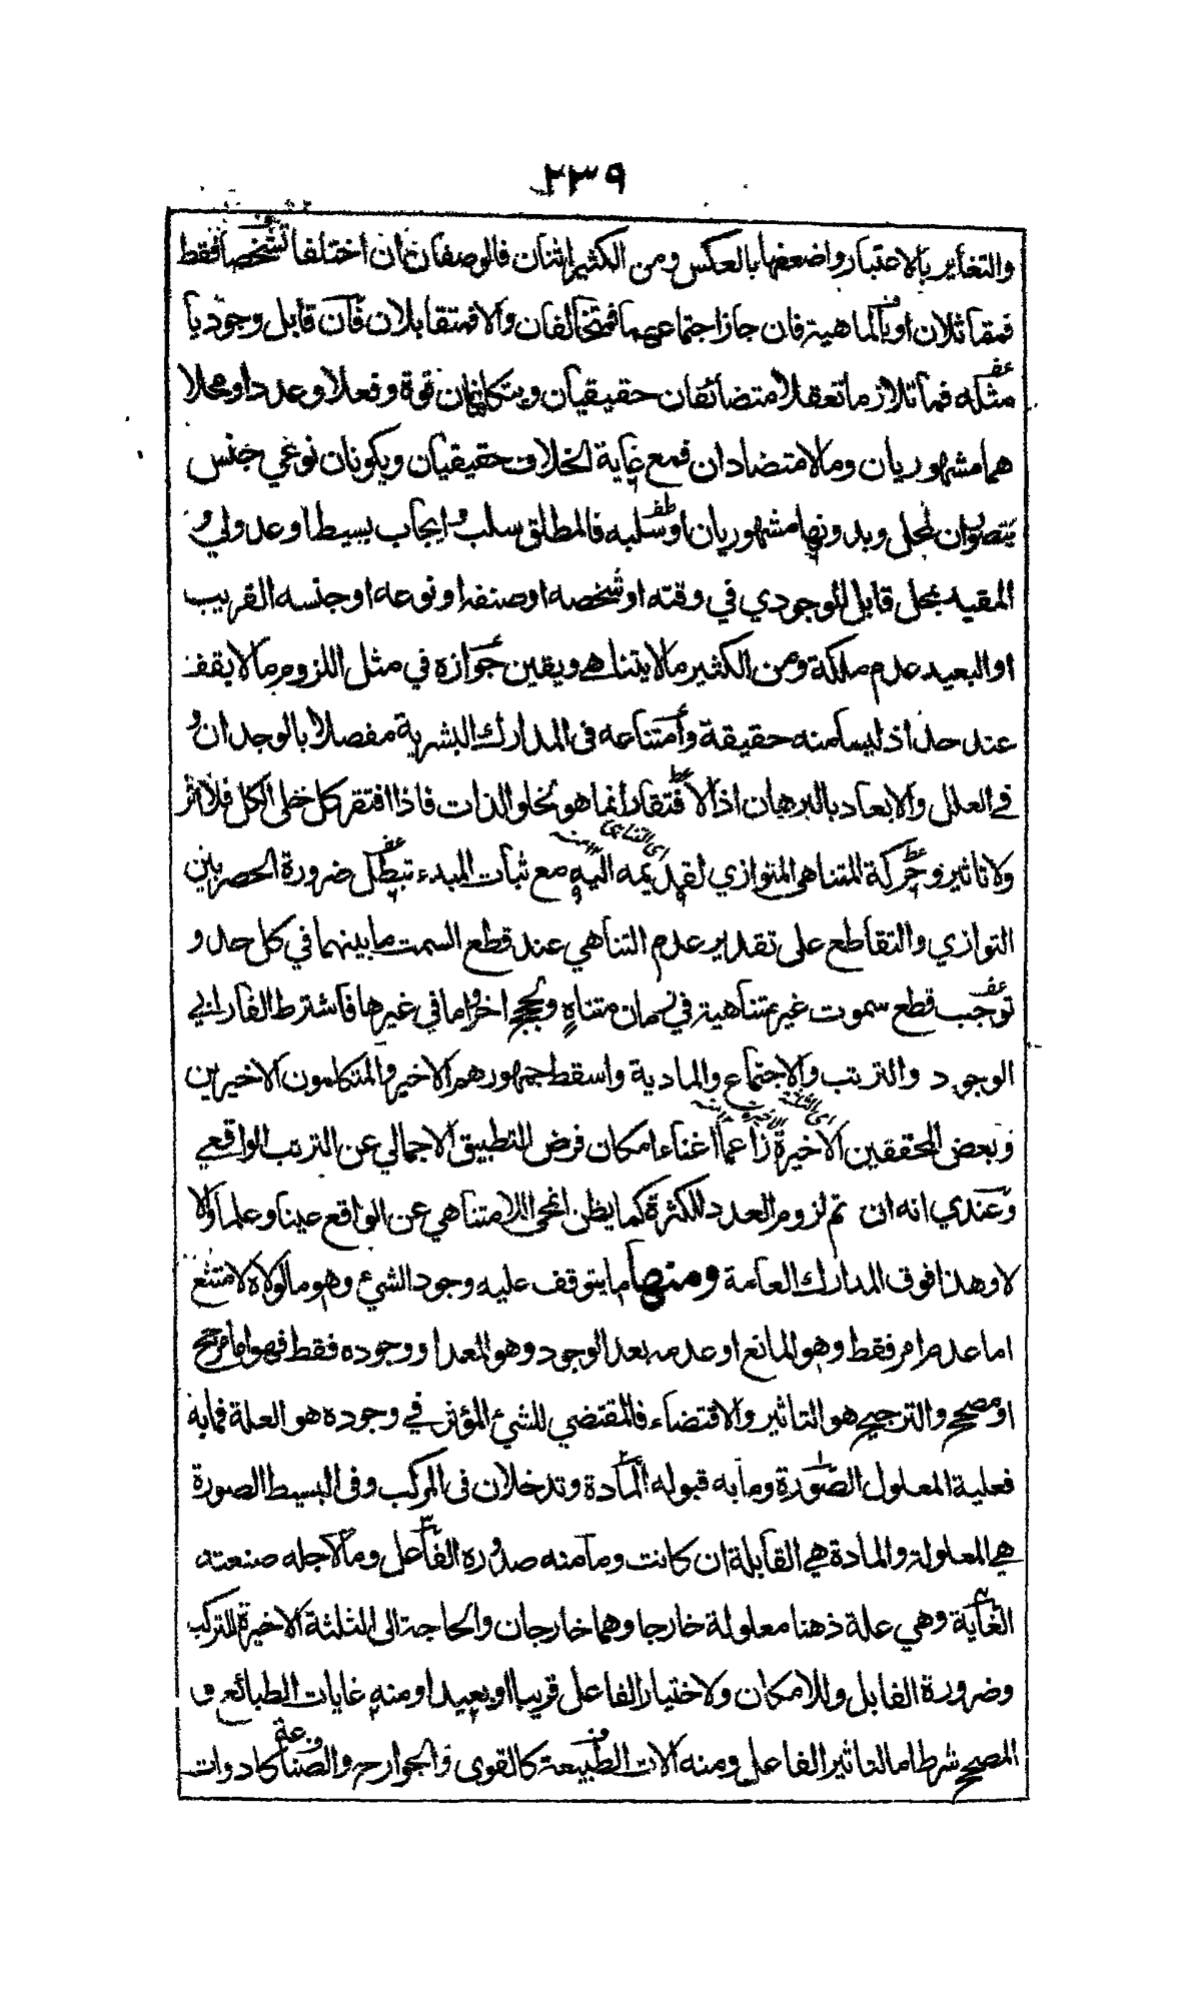 ٢٣٩
والتغاير بالاعتبار واضعفها بالعكس ومن الكثير اثنان فالوصفان ان اختلفا تشخصا فقط
فمتماثلان او بالماهية فان جاز اجتماعهما فمتخالفان والا فمتقابلان فان قابل وجوديا
مثله فما تلازما تعقلا متضائفان حقيقيان ويتكافئان قوة وفعلا وعددا ومحلا
هما مشهوريان وما لا متضادان فمع غاية الخلاف حقيقيان ويكونان نوعي جنس
يتصوان لمحل وبدونها مشهوريان او سلبه فالمطلق سلب وايجاب بسيطا او عدولي و
المقيد بمحل قابل للوجودي في وقته او شخصه او صنفه او نوعه او جنسه القريب
او البعيد عدم ملكة ومن الكثير ما لا يتناهى ويقين جوازه في مثل اللزوم ما لا يقف
عند حد اذ ليسا منه حقيقة وامتناعه في المدارك البشرية مفصلا بالوجدان و
في العلل والابعاد بالبرهان اذ الافتقار انما هو لخلو الذات فاذا افتقر كل خلى الكل فلا اثر
ولا تاثير وحركة المتناهي المتوازي لقديمه اليه مع ثبات المبدء تبطل ضرورة الحصر بين
اى التناهى ١٢ منه
التوازي والتقاطع على تقدير عدم التناهي عند قطع السمت ما بينهما في كل حد و
توجب قطع سموت غير متناهية في زمان متناه وبحجج اخر واما في غيرها فاشترط الفارابي
الوجود والترتب والاجتماع والمادية واسقط جمهورهم الاخير والمتكلمون الاخيرين
وبعض المحققين الاخيرة زاعما اغناء امكان فرض التطبيق الاجمالي عن الترتب الواقعي
اى الثلثة الاخيرة ١٢ منه
وعندي انه ان تم لزوم العدد للكثرة كما يظن انمحى اللامتناهي عن الواقع عينا وعلما والا
لا وهذا فوق المدارك العامة ومنها ما يتوقف عليه وجود الشيء وهو ما لولاه لامتنع
اما عدم امر فقط وهو المانع او عدمه بعد الوجود وهو المعد او وجوده فقط فهو اما مرجح
او مصحح والترجيح هو التاثير والاقتضاء فالمقتضي للشيء المؤثر في وجوده هو العلة فما به
فعلية المعلول الصورة وما به قبوله المادة وتدخلان في المركب وفي البسيط الصورة
هي المعلولة والمادة هي القابلة ان كانت وما منه صدوره الفاعل وما لاجله صنعته
الغاية وهي علة ذهنا معلولة خارجا وهما خارجان والحاجة الى الثلثة الاخيرة للتركب
وضرورة القابل وللامكان ولاختيار الفاعل قريبا او بعيدا ومنه غايات الطبائع و
المصحح شرط اما لتاثير الفاعل ومنه الات الطبيعة كالقوى والجوارح والصناعة كادوات